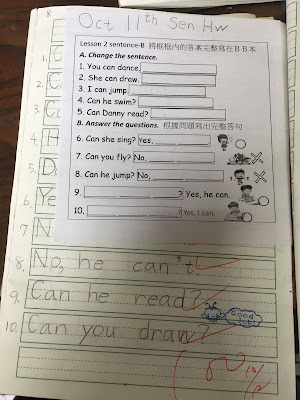 8
Oct 11th Sen Hw
Lesson 2 sentence-B 將框框內的答案完整寫在BB本
A. Change the sentence.
1. You can dance.
2. She can draw.
3. I can jump.
4. Can he swim?
5. Can Danny read?
B. Answer the questions. 根據問題寫出完整答句
6. Can she sing? Yes,
7. Can you fly? No,
8. Can he jump? No,
9. ? Yes, he can.
10. ? Yes, I can.
1. C
2. C
3. C
4. H
5. D
6. Ye
7. N
8. No, he can't.
9. Can he read?
10. Can you draw?
GOOD